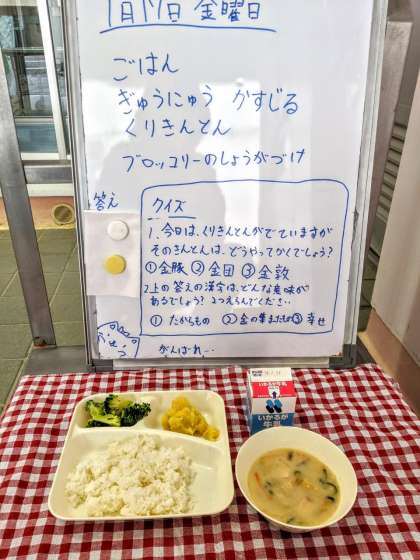 1月17日 金曜日
ごはん
ぎゅうにゅう かすじる
くりきんとん
ブロッコリーのしょうがづけ
答え
クイズ
1. 今日は、くりきんとんがでていますが
そのきんとんは、どうやってかくでしょう?
①金豚 ②金団 ③金敦
2上の答えの漢字は、どんな意味が
あるでしょう? 1つえらんでください…
① たからもの ②金の集またもの③ 幸せ
がんばれ…
いかるが牛乳
いかるが
牛乳